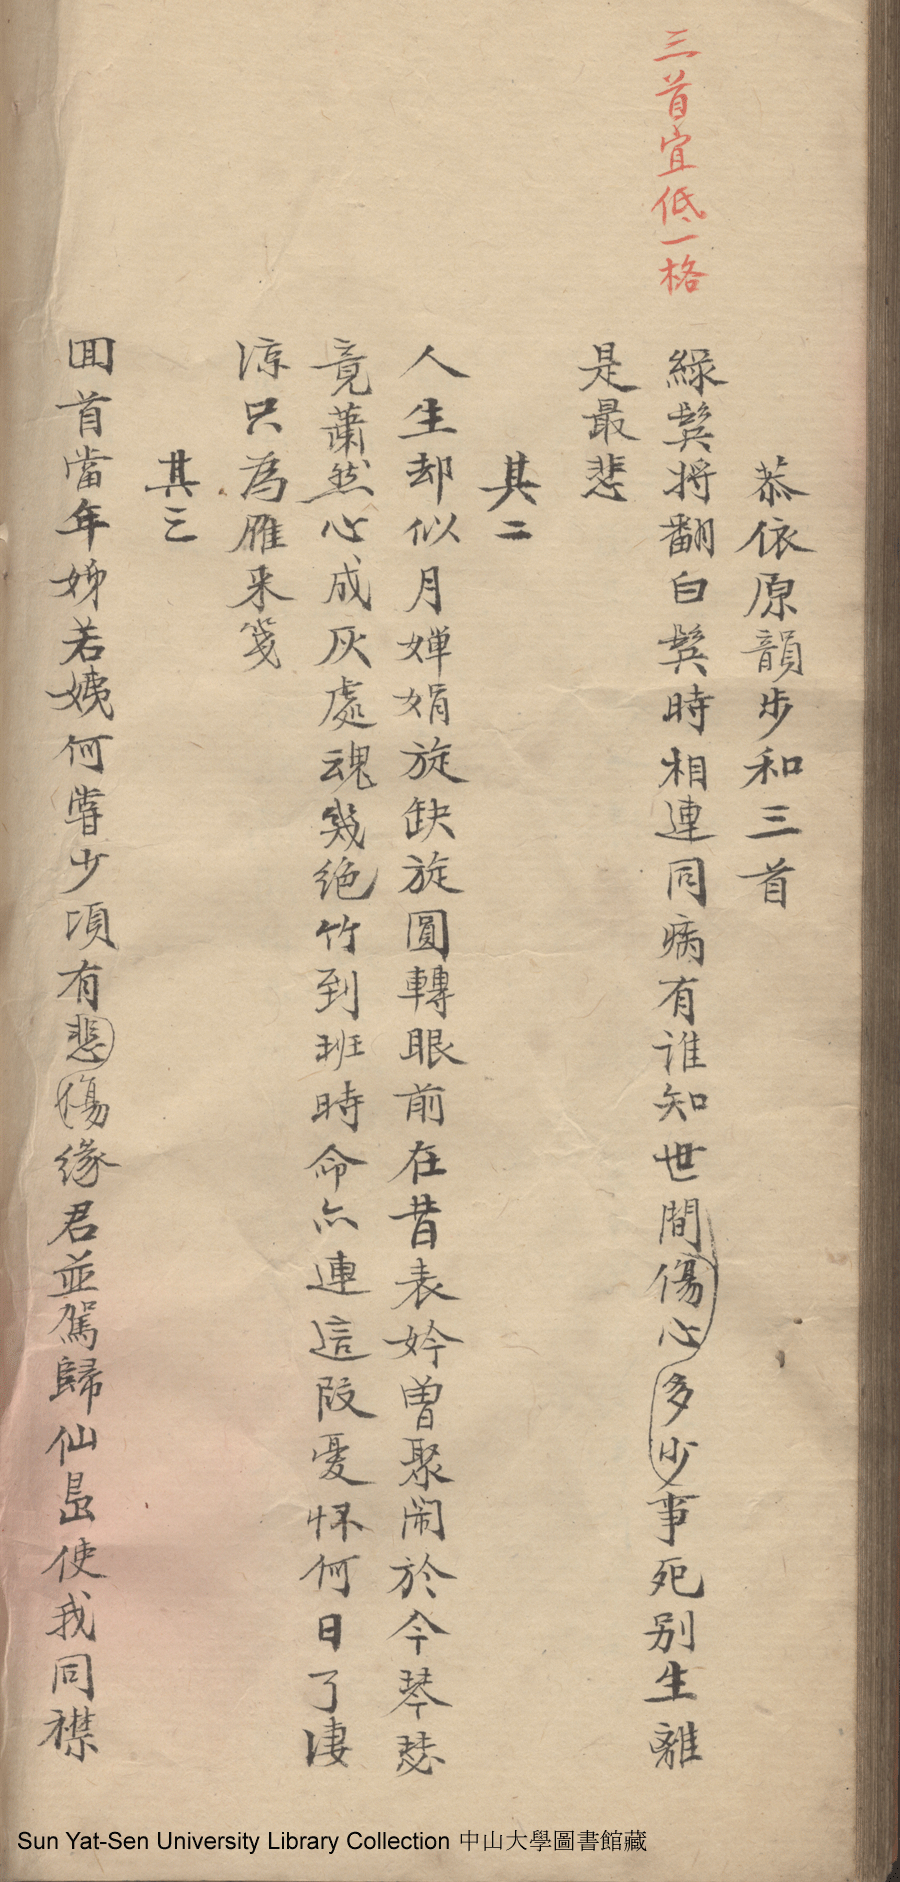 三首宜低一格
恭依原韻步和三首
綠鬂將翻白鬂時相連同病有誰知世間傷心多少事死别生離
是最悲
其二
人生却似月嬋娟旋缺旋圓轉眼前在昔表妗曾聚闹於今琴瑟
竟蕭然心成灰處魂幾绝竹到班時命亦連這段憂怀何日了凄
涼只為雁来箋
其三
囬首當年娣若姨何嘗少項有悲傷缘君並駕歸仙島使我同襟
Sun Yat-Sen University Library Collection 中山大學圖書館藏